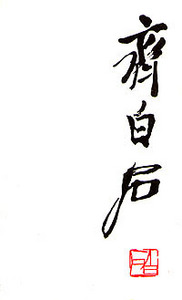 齊白石